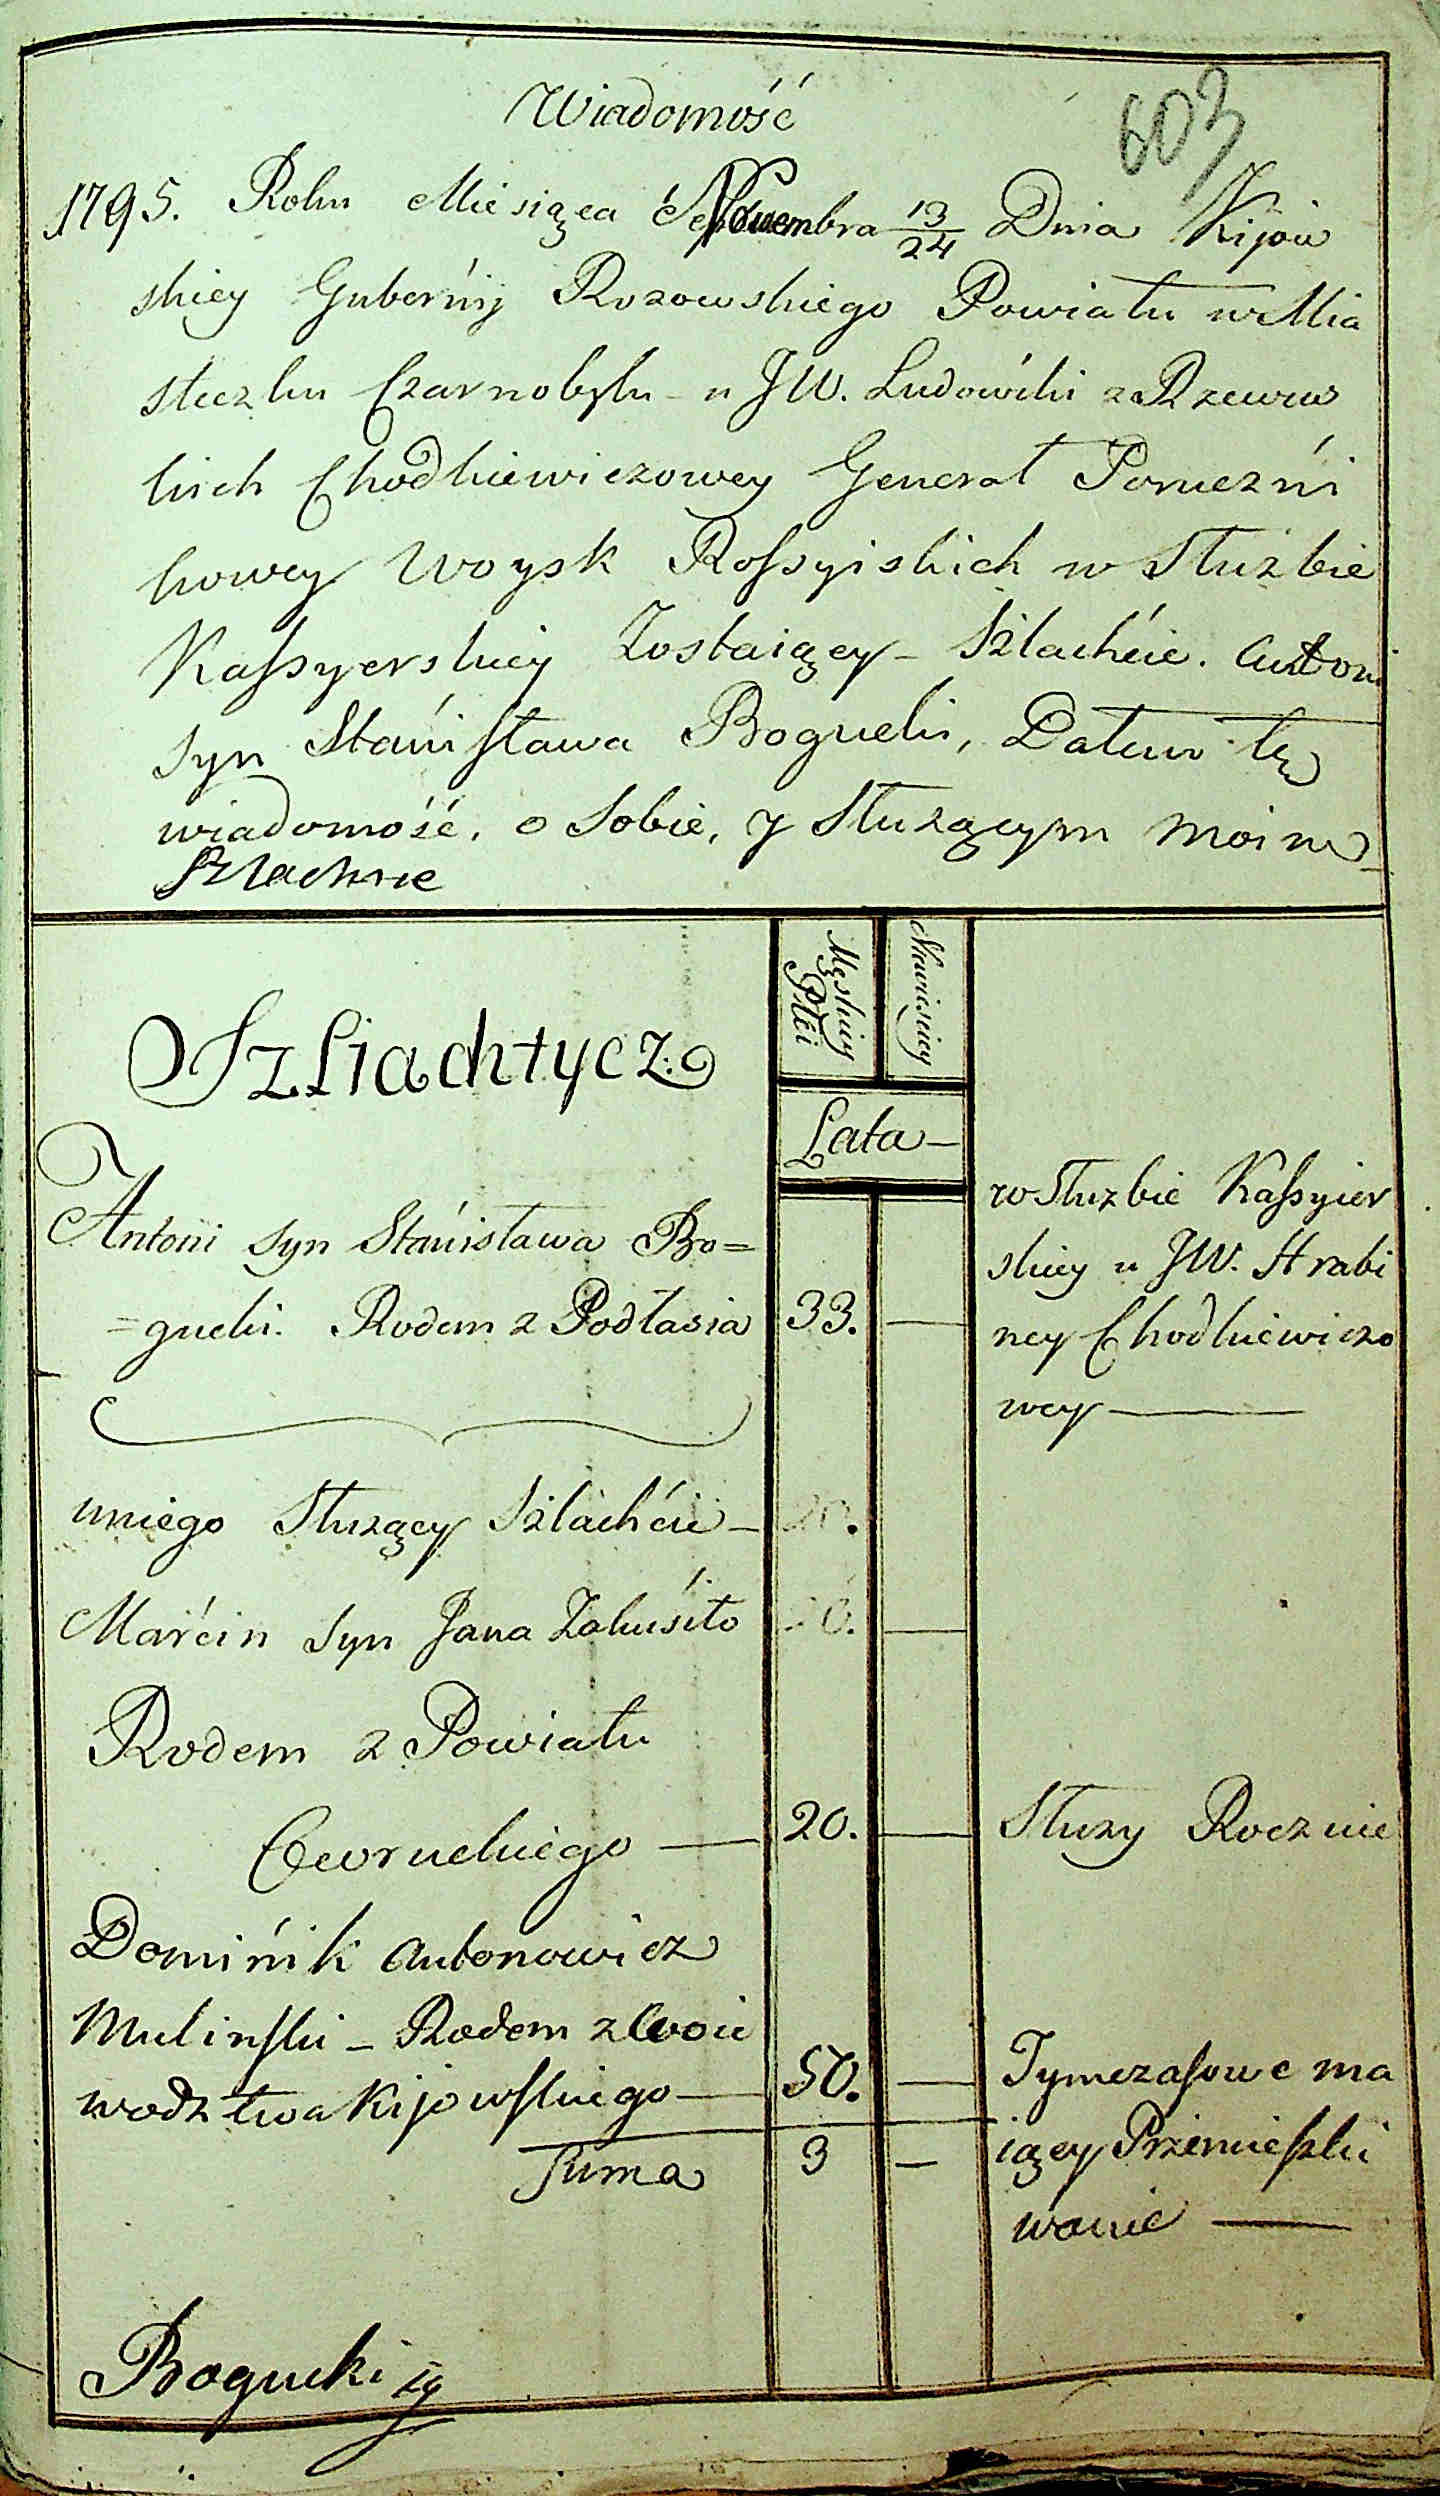 Wiadomość
603
1795. Roku Miesiąca Nowembra 13/24 Dnia Kijow
skiey Guberńij Rozowskiego Powiatu w Mia
steczku Czarnobylu u JW. Ludowiki z Rzewus
kich Chodkiewiczowey Generał Poruczni
kowey Woysk Rossyiskich w Służbie
Kassyerskiey Zostaiącey Szlachcic. Antoni
syn Stanisława Bogucki, Dałem tę
wiadomość, o Sobie, y Służącym moim
Szlachcie
Męskiey Płci
Niewiesciey
Szliachtycz
Lata
Antoni syn Stanisława Bo=
=gucki. Rodem z Podlasia 33. —
w Służbie Kassyier
skiey u JW. Hrabi
ney Chodkiewiczo
wey —
u niego Służący Szlachcic — 20.
Marcin syn Jana Zakusiło 20. —
Rodem z Powiatu
Owruckiego — 20. — Służy Rocznie
Dominik Antonowicz
Mulinski — Rodem z Woie
wodztwa Kijowskiego — 50. — Tymczasowe ma
Suma 3 — iący Przemieszki
wanie —
Bogucki